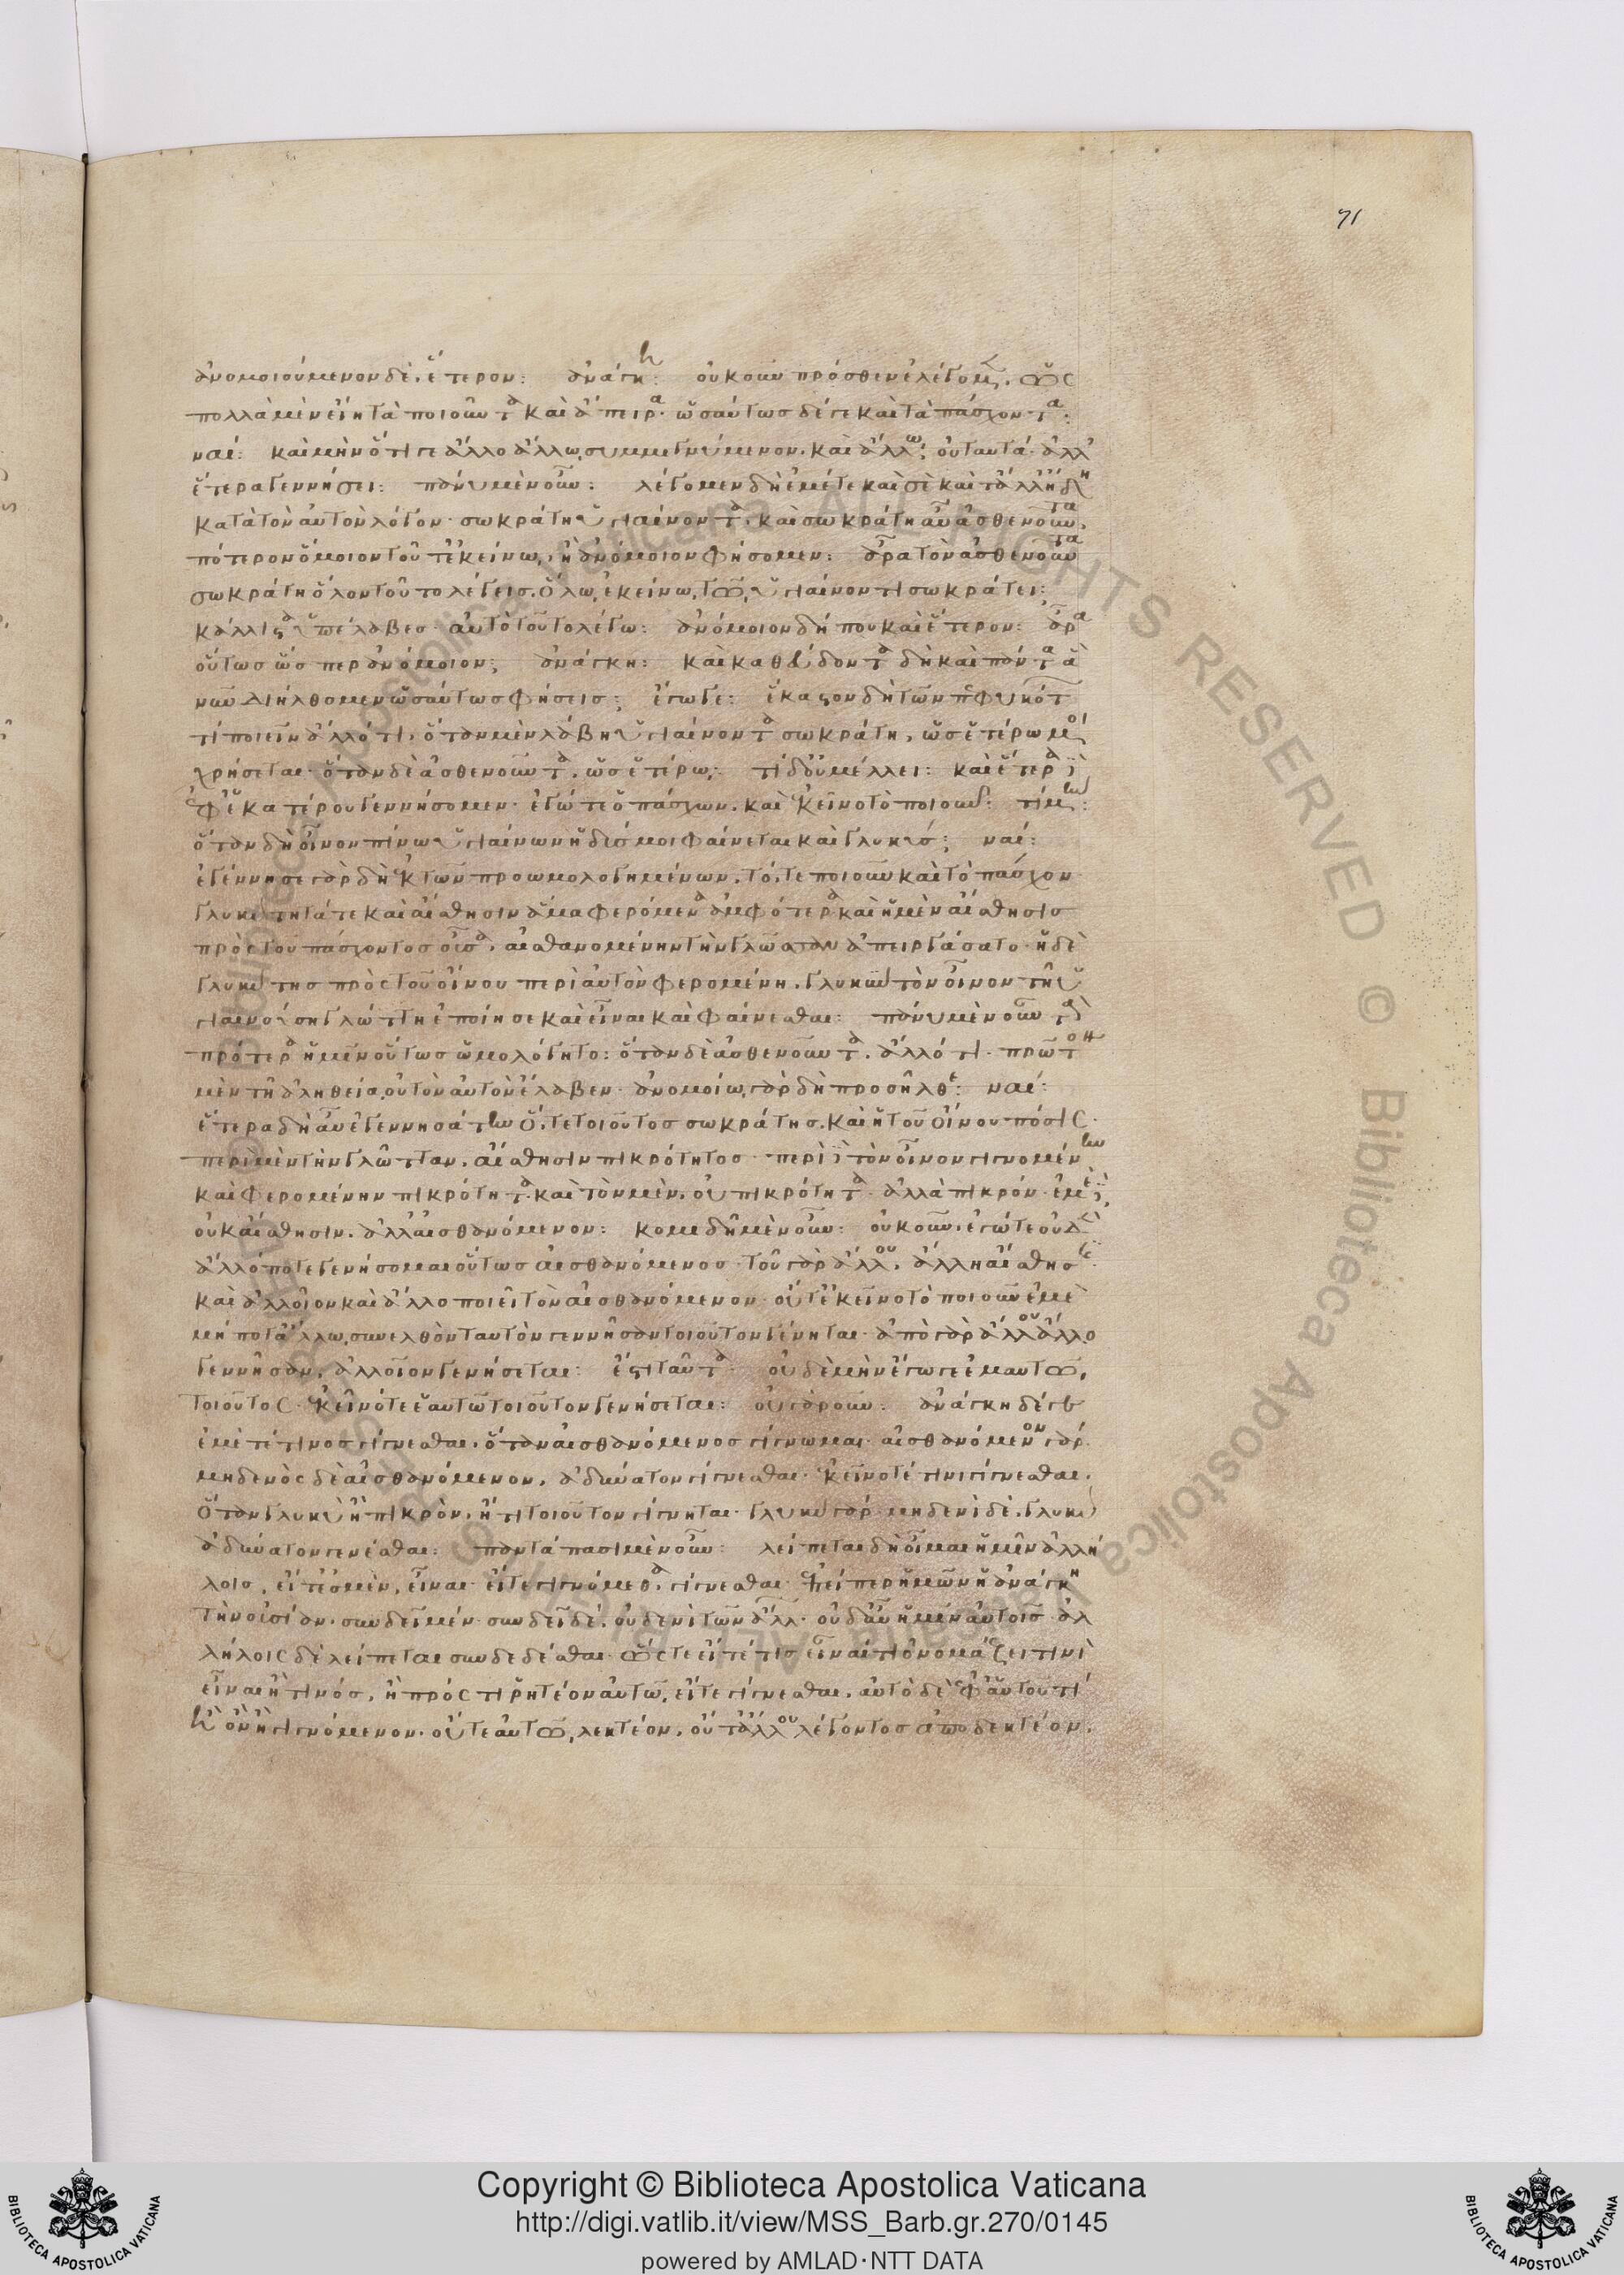 71
ἀνομοιούμενον δὲ, ἕτερον: ἀνάγκη: οὐκοῦν πρόσθεν ἐλέγομεν, ὡς
πολλὰ μὲν εἴη τὰ ποιοῦντα καὶ ἄπειρα· ὡσαύτως δέ γε καὶ τὰ πάσχοντα:
ναί: καὶ μὴν ὅτι γε ἄλλο ἄλλω συμμιγνύμενον, καὶ ἄλλω, οὐ ταυτά· ἀλλ'
ἕτερα γεννήσει: πάνυ μὲν οὖν: λέγομεν δὴ ἐμέ τε καὶ σὲ καὶ τἆλλ' ἤδη
κατὰ τὸν αὐτὸν λόγον· σωκράτη ὑγιαίνοντα, καὶ σωκράτη αὖ ἀσθενοῦντα,
πότερον ὅμοιον τοῦτ' ἐκείνω, ἢ ἀνόμοιον φήσομεν: ἆρα τὸν ἀσθενοῦντα
σωκράτη ὅλον τοῦτο λέγεις, ὅλω ἐκείνω τῶ ὑγιαίνοντι σωκράτει:
κάλλιστα ὑπέλαβες· αὐτὸ τοῦτο λέγω: ἀνόμοιον δή που καὶ ἕτερον: ἆρα
οὕτως ὥσπερ ἀνόμοιον; ἀνάγκη: καὶ καθεύδοντα δὴ καὶ πάντα ἃ
νῦν διήλθομεν ὡσαύτως φήσεις; ἔγωγε: ἕκαστον δὴ τῶν πεφυκότων
τὶ ποιεῖν ἄλλό τι, ὅταν μὲν λάβη ὑγιαίνοντα σωκράτη, ὡς ἑτέρω μοί
χρήσεται· ὅταν δὲ ἀσθενοῦντα, ὡς ἑτέρω: τί δ' οὐ μέλλει: καὶ ἕτερα δὴ
ἐφ' ἑκατέρου γεννήσομεν· ἐγώ τε ὁ πάσχων, καὶ ἐκεῖνο τὸ ποιοῦν: τί μήν:
ὅταν δὴ οἶνον πίνω ὑγιαίνων ἡδύς μοι φαίνεται καὶ γλυκύς; ναί:
ἐγέννησε γὰρ δὴ ἐκ τῶν προωμολογημένων, τό, τε ποιοῦν καὶ τὸ πάσχον
γλυκύτητά τε καὶ αἴσθησιν ἅμα φερόμενα ἀμφότερα· καὶ ἡ μὲν αἴσθησις
πρὸς τοῦ πάσχοντος οὖσα, αἰσθανομένην τὴν γλῶσσαν ἀπειργάσατο· ἡ δὲ
γλυκύτης πρὸς τοῦ οἴνου περὶ αὐτὸν φερομένη, γλυκὺν τὸν οἶνον τῆ ὑ
γιαινούση γλώττη ἐποίησε καὶ εἶναι καὶ φαίνεσθαι: πάνυ μὲν οὖν τὰ
πρότερα ἡμῖν οὕτως ὡμολόγητο: ὅταν δὲ ἀσθενοῦντα, ἄλλό τι· πρῶτον
μὲν τῆ ἀληθεία οὐ τὸν αὐτὸν ἔλαβεν· ἀνομοίω γὰρ δὴ προσῆλθε: ναί:
ἕτερα δὴ αὖ ἐγεννησάτην ὅ, τε τοιοῦτος σωκράτης, καὶ ἡ τοῦ οἴνου πόσις·
περὶ μὲν τὴν γλῶτταν, αἴσθησιν πικρότητος· περὶ δὲ τὸν οἶνον γιγνομένην
καὶ φερομένην πικρότητα· καὶ τὸν μὲν, οὐ πικρότητα· ἀλλὰ πικρόν· ἐμὲ δὲ,
οὐκ αἴσθησιν, ἀλλ' αἰσθανόμενον: κομιδῆ μὲν οὖν: οὐκοῦν, ἐγώ τε οὐδὲν
ἄλλό ποτε γενήσομαι οὕτως αἰσθανόμενος· τοῦ γὰρ ἄλλου, ἄλλη αἴσθησις·
καὶ ἀλλοῖον καὶ ἄλλο ποιεῖ τὸν αἰσθανόμενον· οὔτ' ἐκεῖνο τὸ ποιοῦν ἐμὲ
μή ποτ' ἄλλω συνελθὸν ταυτὸν γεννῆσαν τοιοῦτον γένηται· ἀπὸ γὰρ ἄλλου ἄλλο
γεννῆσαν, ἀλλοῖον γενήσεται: ἔστι ταῦτα· οὐδὲ μὴν ἔγωγε ἐμαυτῶ,
τοιοῦτος· ἐκεῖνό τε ἑαυτῶ τοιοῦτον γενήσεται: οὐ γὰρ οὖν: ἀνάγκη δέ γε
ἐμέ τέ τινος γίγνεσθαι, ὅταν αἰσθανόμενος γίγνωμαι· αἰσθανόμενον γάρ·
μηδενὸς δὲ αἰσθανόμενον, ἀδύνατον γίγνεσθαι· ἐκεῖνό τέ τινι γίγνεσθαι,
ὅταν γλυκὺ ἢ πικρὸν, ἤ τι τοιοῦτον γίγνηται· γλυκὺ γάρ· μηδενὶ δὲ, γλυκὺ
ἀδύνατον γενέσθαι: παντάπασι μὲν οὖν: λείπεται δὴ οἶμαι ἡμῖν ἀλλή
λοις, εἴτ' ἐσμὲν, εἶναι· εἴτε γιγνόμεθα, γίγνεσθαι· ἐπείπερ ἡμῶν ἡ ἀνάγκη
τὴν οὐσίαν· συνδεῖ μέν· συνδεῖ δὲ, οὐδενὶ τῶν ἄλλων· οὐδ' αὖ ἡμῖν αὐτοῖς· ἀλ
λήλοις δὲ λείπεται συνδεδέσθαι· ὥστε εἴτέ τις εἶναί τι ὀνομάζει τινὶ
εἶναι ἢ τινός, ἢ πρός τι ῥητέον αὐτῶ, εἴτε γίγνεσθαι, αὐτὸ δὲ ἐφ' αὑτοῦ τί
ἢ ὂν ἢ γιγνόμενον· οὔτε αὐτῶ λεκτέον, οὔτ' ἄλλου λέγοντος ἀποδεκτέον,
Copyright © Biblioteca Apostolica Vaticana
http://digi.vatlib.it/view/MSS_Barb.gr.270/0145
powered by AMLAD·NTT DATA